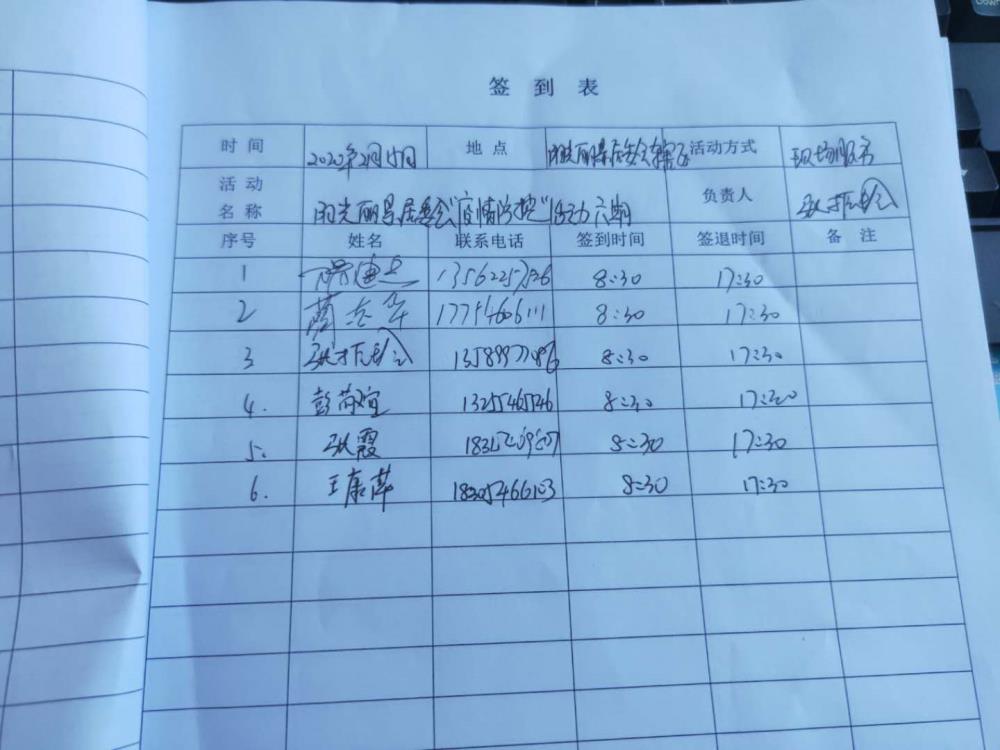 签 到 表
时 间 2022年2月15日 地 点 阳光丽景居委会 活动方式 现场服务
活 动 名 称 阳光丽景居委会"疫情防控"活动六期 负责人
序号 姓名 联系电话 签到时间 签退时间 备 注
1 8:30 17:30
2 17754606111 8:30 17:30
3 8:30 17:30
4. 彭芮煊 13255465546 8:30 17:30
5. 张霞 8:30 17:30
6. 王康萍 18305466103 8:30 17:30